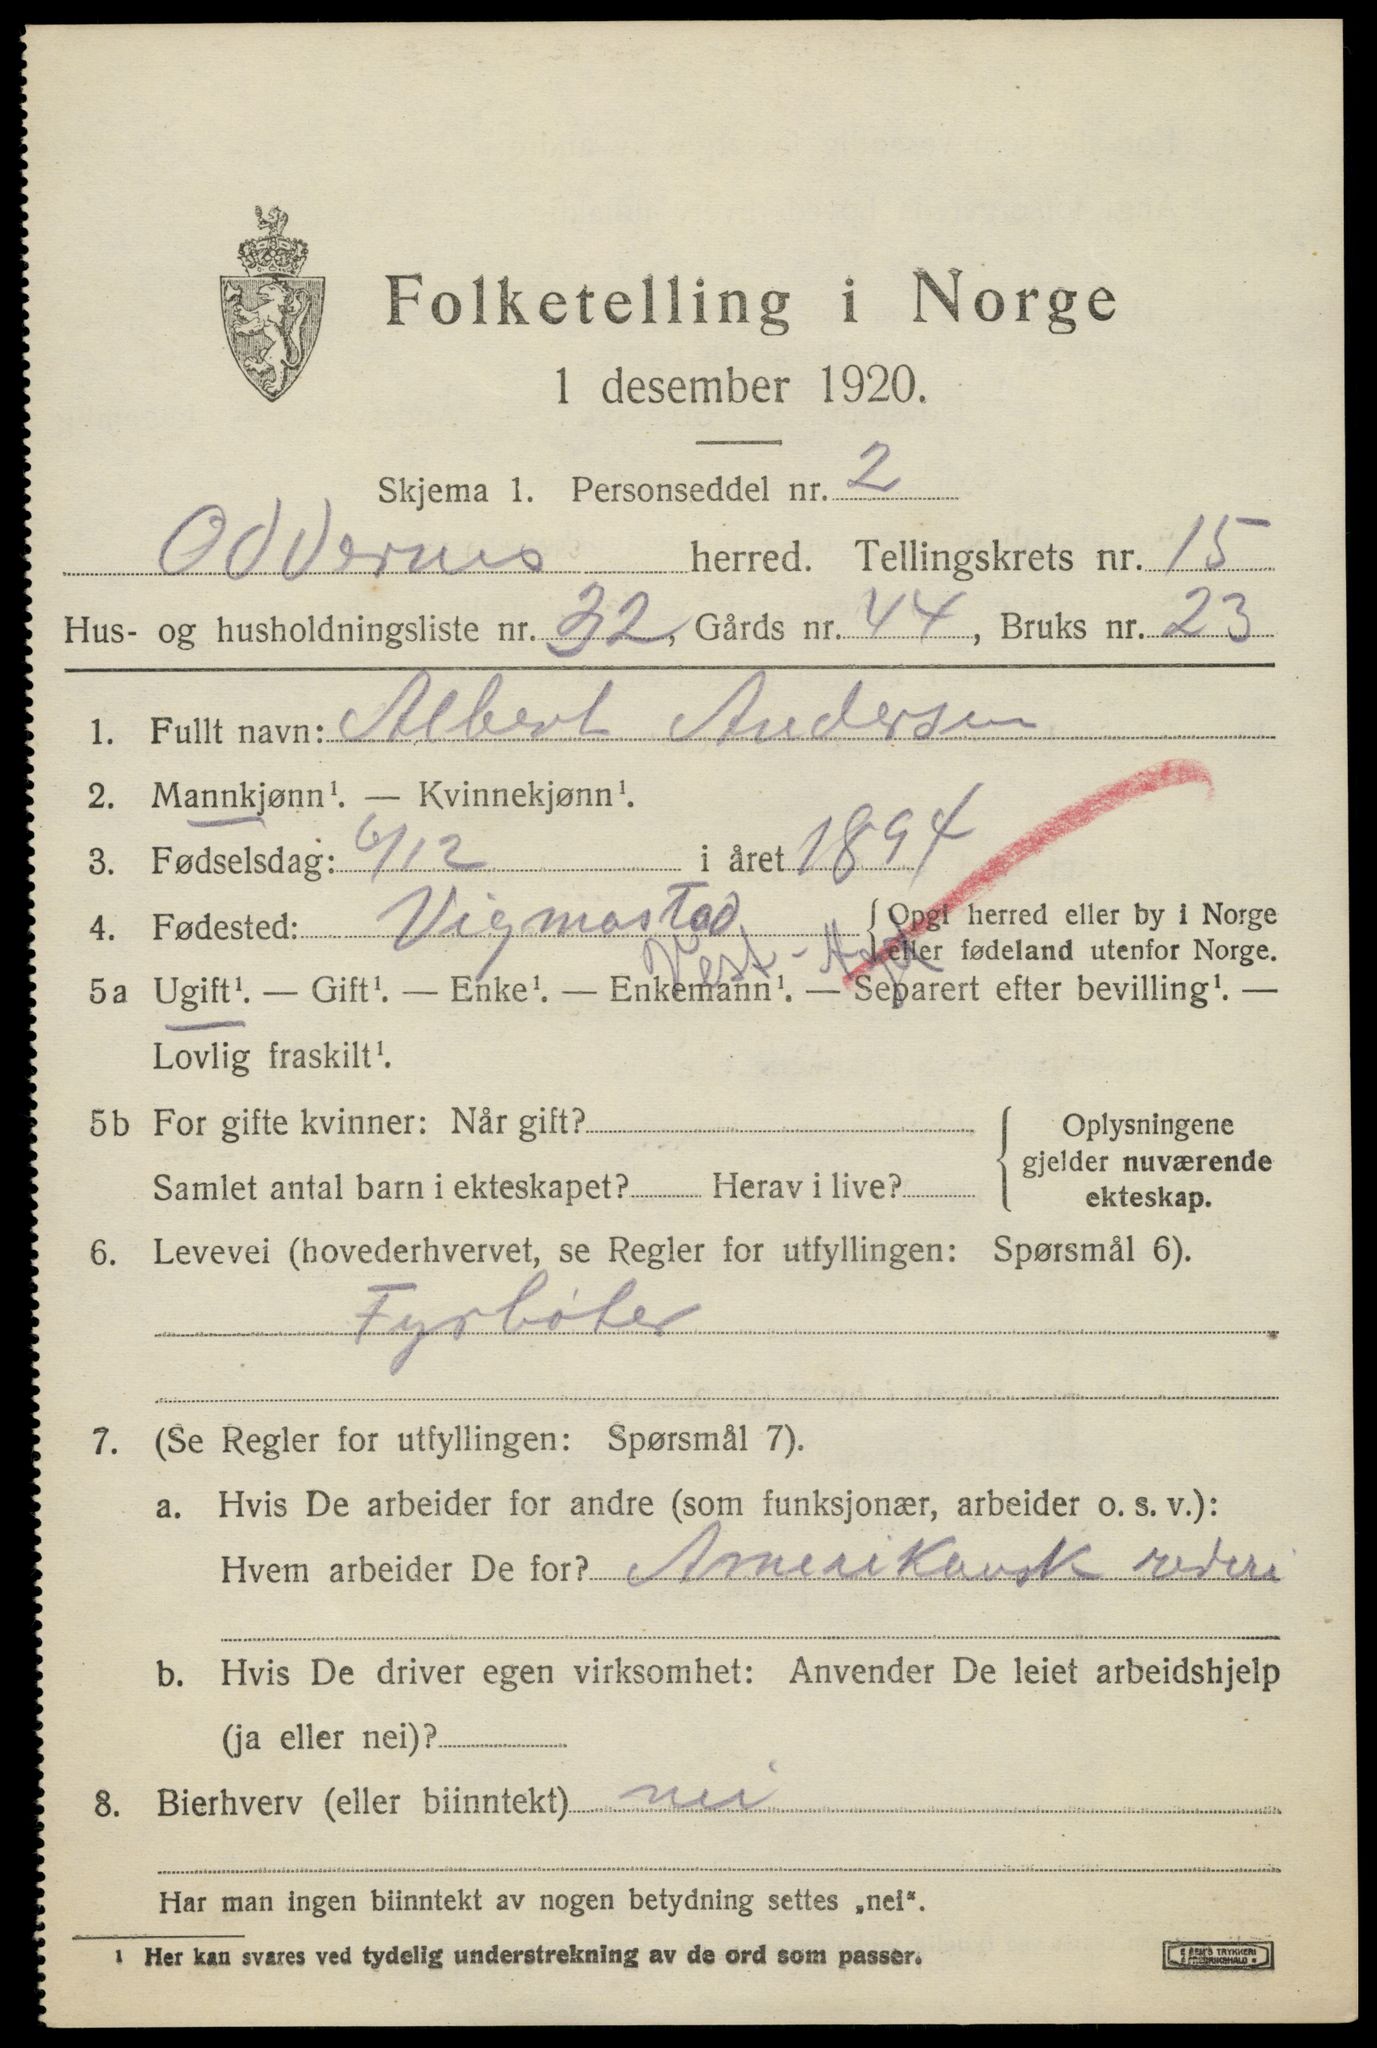 Folketelling i Norge
1 desember 1920.
Skjema 1. Personseddel nr. 2
Oddernes herred. Tellingskrets nr. 15
Hus- og husholdningsliste nr. 32, Gårds nr. 44, Bruks nr. 23
1. Fullt navn: Albert Andersen
2. Mannkjønn¹. — Kvinnekjønn¹.
3. Fødselsdag: 6/12 i året 1894
4. Fødested: Vigmostad {Opgi herred eller by i Norge
eller fødeland utenfor Norge.
Vest-Agd
5a Ugift¹. — Gift¹. — Enke¹. — Enkemann¹. — Separert efter bevilling¹. —
Lovlig fraskilt¹.
5b For gifte kvinner: Når gift?
Samlet antal barn i ekteskapet? Herav i live?
Oplysningene
gjelder nuværende
ekteskap.
6. Levevei (hovederhvervet, se Regler for utfyllingen: Spørsmål 6).
Fyrbøter
7. (Se Regler for utfyllingen: Spørsmål 7).
a. Hvis De arbeider for andre (som funksjonær, arbeider o. s. v.):
Hvem arbeider De for? Amerikansk rederi
b. Hvis De driver egen virksomhet: Anvender De leiet arbeidshjelp
(ja eller nei)?
8. Bierhverv (eller biinntekt) nei
Har man ingen biinntekt av nogen betydning settes „nei“.
¹ Her kan svares ved tydelig understrekning av de ord som passer.